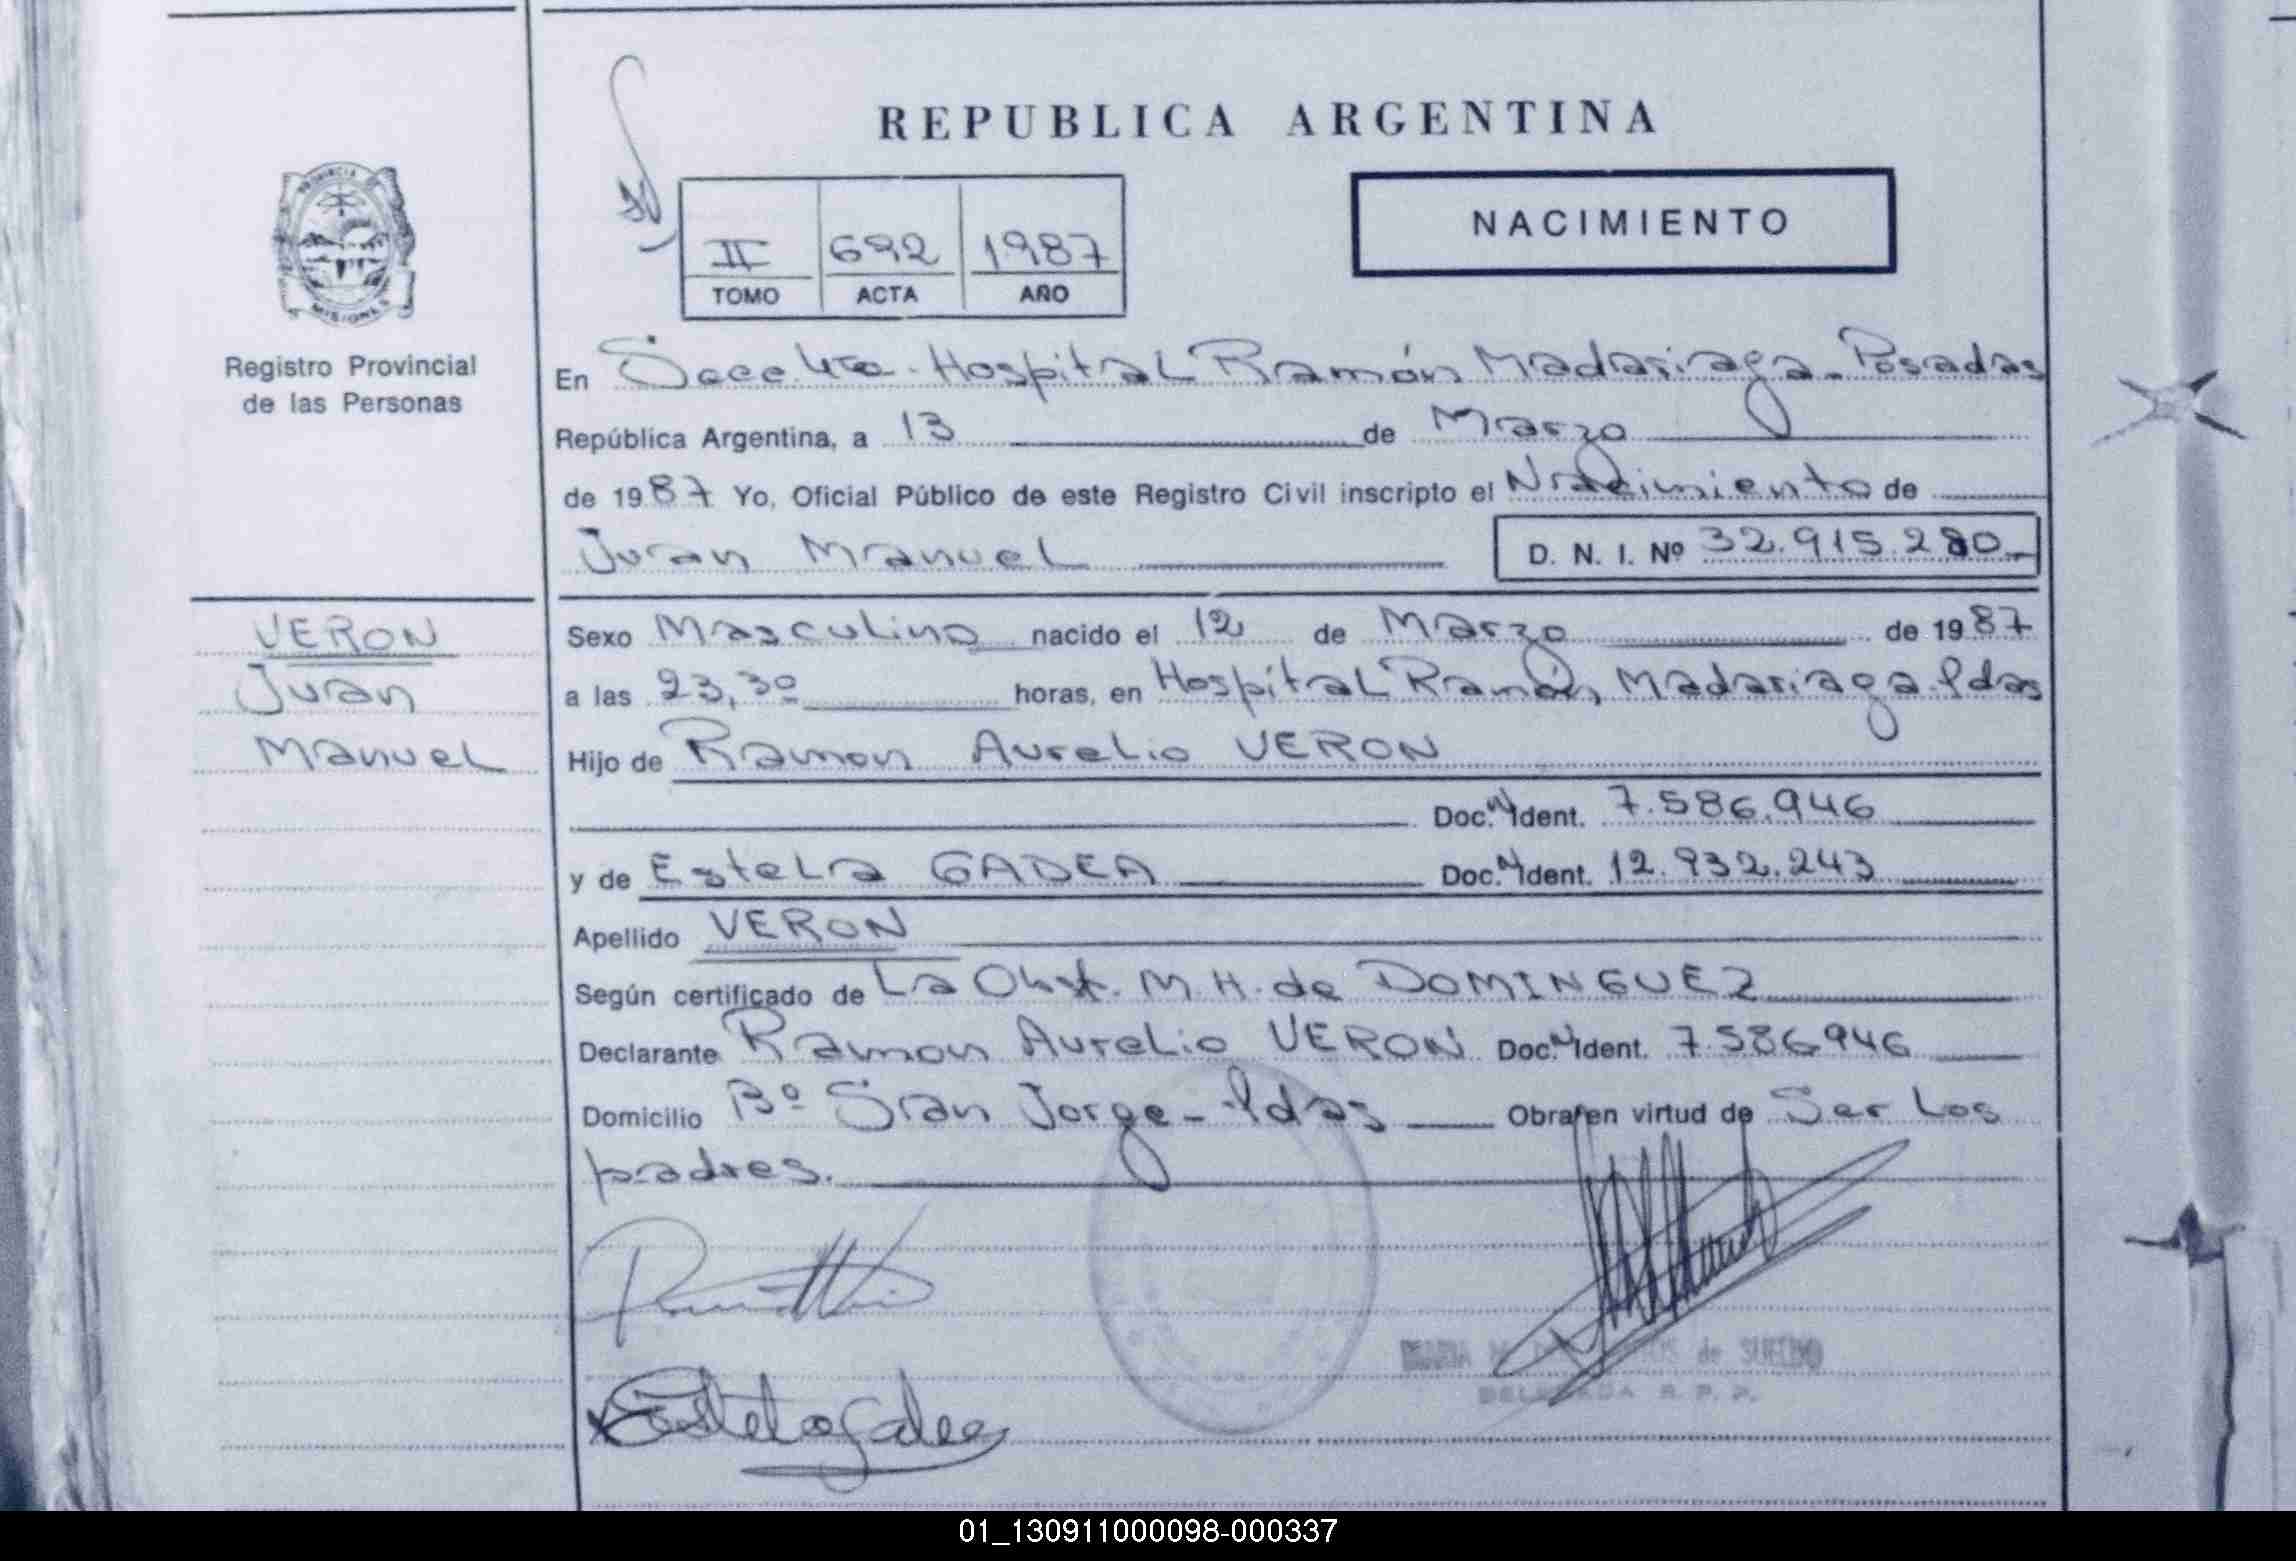 REPUBLICA ARGENTINA
NACIMIENTO
II 692 1987
TOMO ACTA AÑO
PROVINCIA DE
MISIONES
Registro Provincial
de las Personas
En Secc. 4ta. Hospital Ramón Madariaga - Posadas
República Argentina, a 13 de Marzo
de 1987 Yo, Oficial Público de este Registro Civil inscripto el Nacimiento de
Juan Manuel D. N. I. Nº 32.915.280
VERON
Juan
Manuel
Sexo Masculino nacido el 12 de Marzo de 1987
a las 23,30 horas, en Hospital Ramón Madariaga - Pdas
Hijo de Ramon Aurelio VERON
Doc. N Ident. 7.586.946
y de Estela GADEA Doc. N Ident. 12.932.243
Apellido VERON
Según certificado de La Obst. M. H. de DOMINGUEZ
Declarante Ramon Aurelio VERON Doc. N Ident. 7.586946
Domicilio Bº San Jorge - Pdas Obra/en virtud de Ser Los
padres.
Estela Gadea
MARIA de SUELDO
DELEGADA R. P. P.
01_130911000098-000337